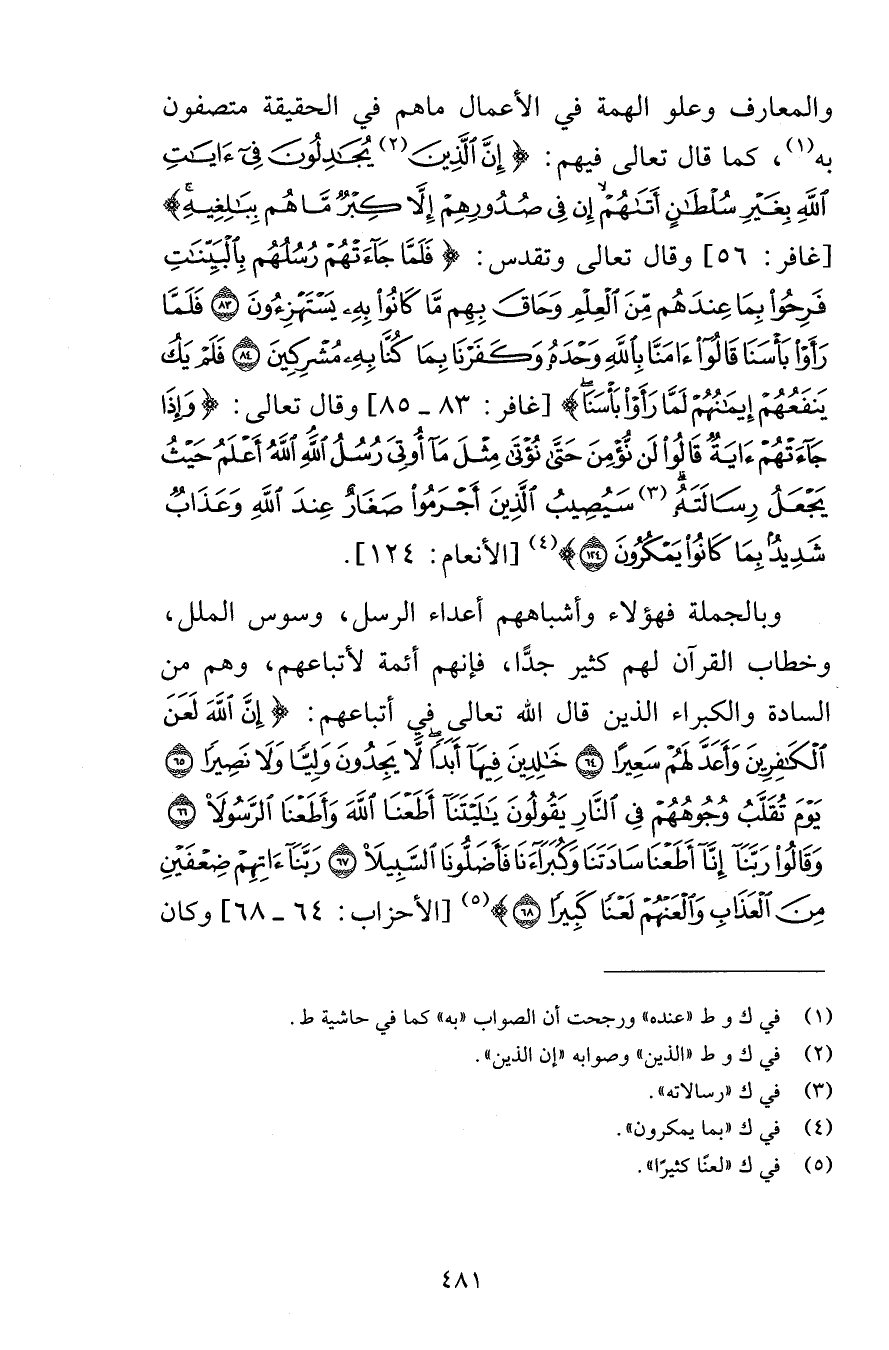 والمعارف وعلو الهمة في الأعمال ماهم في الحقيقة متصفون
به(١)، كما قال تعالى فيهم: ﴿ إِنَّ ٱلَّذِينَ(٢) يُجَٰدِلُونَ فِىٓ ءَايَٰتِ
ٱللَّهِ بِغَيْرِ سُلْطَٰنٍ أَتَىٰهُمْ ۙ إِن فِى صُدُورِهِمْ إِلَّا كِبْرٌ مَّا هُم بِبَٰلِغِيهِ ۚ﴾
[غافر: ٥٦] وقال تعالى وتقدس: ﴿ فَلَمَّا جَآءَتْهُمْ رُسُلُهُم بِٱلْبَيِّنَٰتِ
فَرِحُوا۟ بِمَا عِندَهُم مِّنَ ٱلْعِلْمِ وَحَاقَ بِهِم مَّا كَانُوا۟ بِهِۦ يَسْتَهْزِءُونَ ٨٣ فَلَمَّا
رَأَوْا۟ بَأْسَنَا قَالُوٓا۟ ءَامَنَّا بِٱللَّهِ وَحْدَهُۥ وَكَفَرْنَا بِمَا كُنَّا بِهِۦ مُشْرِكِينَ ٨٤ فَلَمْ يَكُ
يَنفَعُهُمْ إِيمَٰنُهُمْ لَمَّا رَأَوْا۟ بَأْسَنَا ۖ﴾ [غافر: ٨٣ ـ ٨٥] وقال تعالى: ﴿ وَإِذَا
جَآءَتْهُمْ ءَايَةٌ قَالُوا۟ لَن نُّؤْمِنَ حَتَّىٰ نُؤْتَىٰ مِثْلَ مَآ أُوتِىَ رُسُلُ ٱللَّهِ ۘ ٱللَّهُ أَعْلَمُ حَيْثُ
يَجْعَلُ رِسَالَتَهُۥ ۗ(٣) سَيُصِيبُ ٱلَّذِينَ أَجْرَمُوا۟ صَغَارٌ عِندَ ٱللَّهِ وَعَذَابٌ
شَدِيدٌۢ بِمَا كَانُوا۟ يَمْكُرُونَ ١٢٤ ﴾(٤) [الأنعام: ١٢٤].
وبالجملة فهؤلاء وأشباههم أعداء الرسل، وسوس الملل،
وخطاب القرآن لهم كثير جدًّا، فإنهم أئمة لأتباعهم، وهم من
السادة والكبراء الذين قال الله تعالى في أتباعهم: ﴿ إِنَّ ٱللَّهَ لَعَنَ
ٱلْكَٰفِرِينَ وَأَعَدَّ لَهُمْ سَعِيرًا ٦٤ خَٰلِدِينَ فِيهَآ أَبَدًا ۖ لَّا يَجِدُونَ وَلِيًّا وَلَا نَصِيرًا ٦٥
يَوْمَ تُقَلَّبُ وُجُوهُهُمْ فِى ٱلنَّارِ يَقُولُونَ يَٰلَيْتَنَآ أَطَعْنَا ٱللَّهَ وَأَطَعْنَا ٱلرَّسُولَا۠ ٦٦
وَقَالُوا۟ رَبَّنَآ إِنَّآ أَطَعْنَا سَادَتَنَا وَكُبَرَآءَنَا فَأَضَلُّونَا ٱلسَّبِيلَا۠ ٦٧ رَبَّنَآ ءَاتِهِمْ ضِعْفَيْنِ
مِنَ ٱلْعَذَابِ وَٱلْعَنْهُمْ لَعْنًا كَبِيرًا ٦٨ ﴾(٥) [الأحزاب: ٦٤ ـ ٦٨] وكان
(١) في ك و ط «عنده» ورجحت أن الصواب «به» كما في حاشية ط.
(٢) في ك و ط «الذين» وصوابه «إن الذين».
(٣) في ك «رسالاته».
(٤) في ك «بما يمكرون».
(٥) في ك «لعنًا كثيرًا».
٤٨١